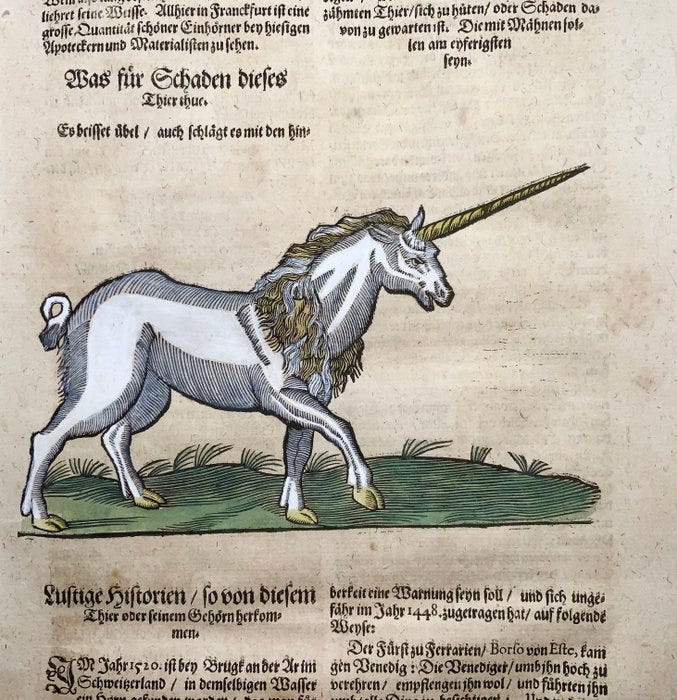 liehret seine Weisse. Allhier in Franckfurt ist eine
grosse Quantität schöner Einhörner bey hiesigen
Apoteckern und Materialisten zu sehen.
Was für Schaden dieses
Thier thue.
Es beisset übel / auch schlägt es mit den hin-
zähmten Thier/sich zu hüten/ oder Schaden da-
von zu gewarten ist. Die mit Mähnen sol-
len am eyferigsten
seyn.
Lustige Historien / so von diesem
Thier oder seinem Gehörn herkom-
men.
IM Jahr 1520. ist bey Brugk an der Ar im
Schweitzerland / in demselbigen Wasser
ein Horn gefunden worden /
berkeit eine Warnung seyn soll / und sich unge-
fähr im Jahr 1448. zugetragen hat / auf folgende
Weyse:
Der Fürst zu Ferrarien / Borso von Este, kam
gen Venedig : Die Venediger / umb ihn hoch zu
verehren / empfiengen ihn wol / und führten ihn